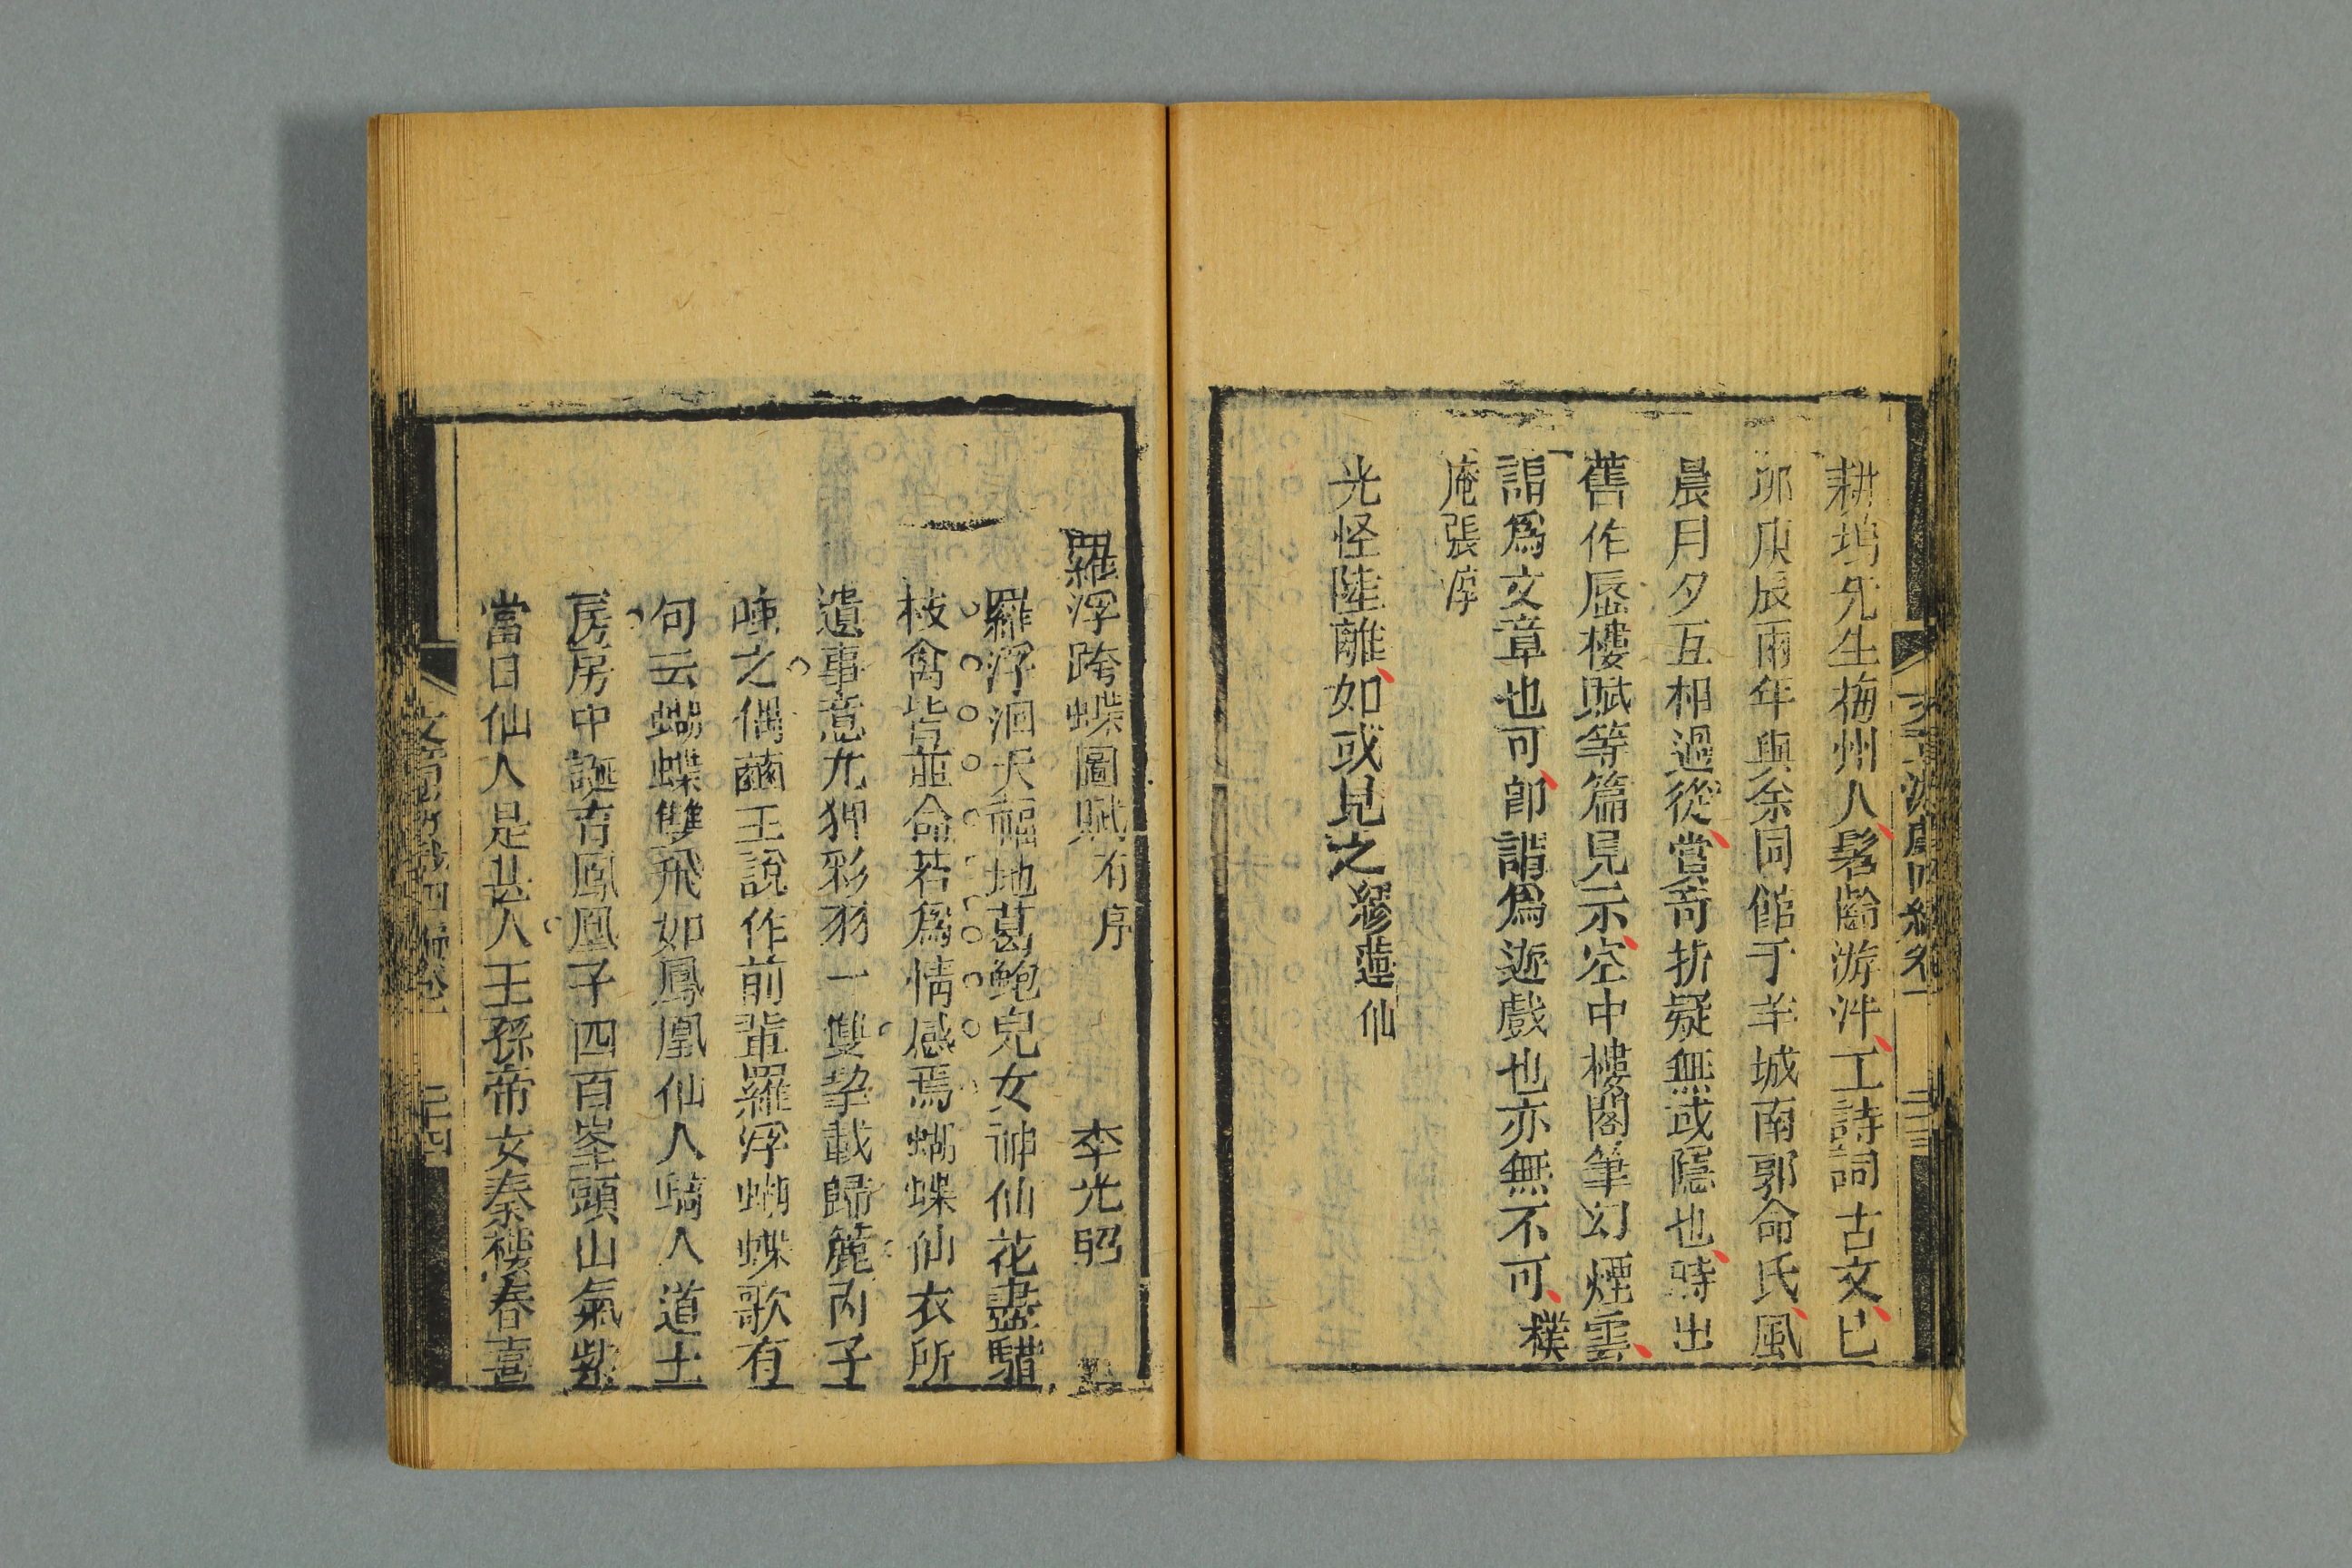 文章游戲四編卷一 二十三
耕塢先生梅州人髫齡游泮工詩詞古文已
卯庚辰兩年與余同館于羊城南郭命氏風
晨月夕互相過從賞奇折疑無或隱也時出
舊作蜃樓賦等篇見示空中樓閣筆幻煙雲
謂為文章也可卽謂為遊戲也亦無不可 樸
庵張淳
光怪陸離如或見之 繆蓮仙
羅浮跨蝶圖賦 有序 李光昭
羅浮洞天福地葛鮑兒女神仙花盡騈
枝禽皆並命若為情感焉蝴蝶仙衣所
遺事意尤狎彩羽一雙挚載歸簏丙子
晚之偶繭王說作前輩羅浮蝴蝶歌有
句云蝴蝶雙飛如鳳凰仙人騎入道士
房房中誕育鳳凰子四百峯頭山氣紫
當日仙人是其人王孫帝女秦樓春喜
文章游戲四編卷一 二十四